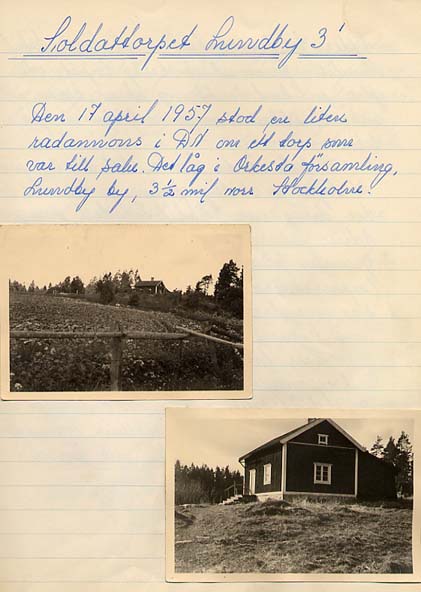 Soldattorpet Lundby 3'
Den 17 april 1957 stod en liten
radannons i DN om ett torp som
var till salu. Det låg i Orkesta församling,
Lundby by, 3 ½ mil norr Stockholm.